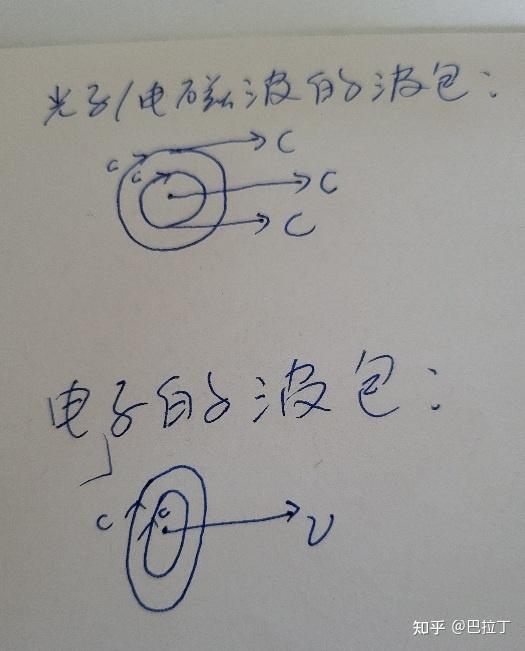 光子/电磁波的波包:
c → C
c → C
→ C
电子的波包:
c c → v
知乎 @巴拉丁